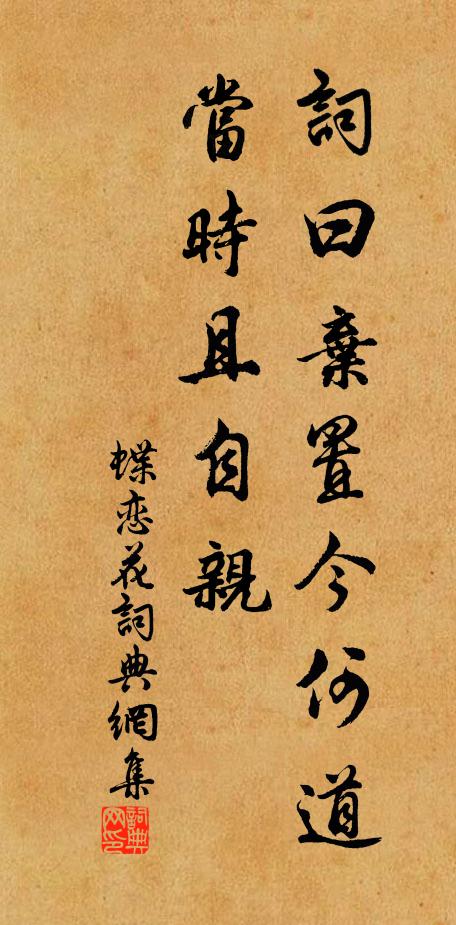 詞曰棄置今何道
當時且自親
蝶恋花詞典網集
詞典网印